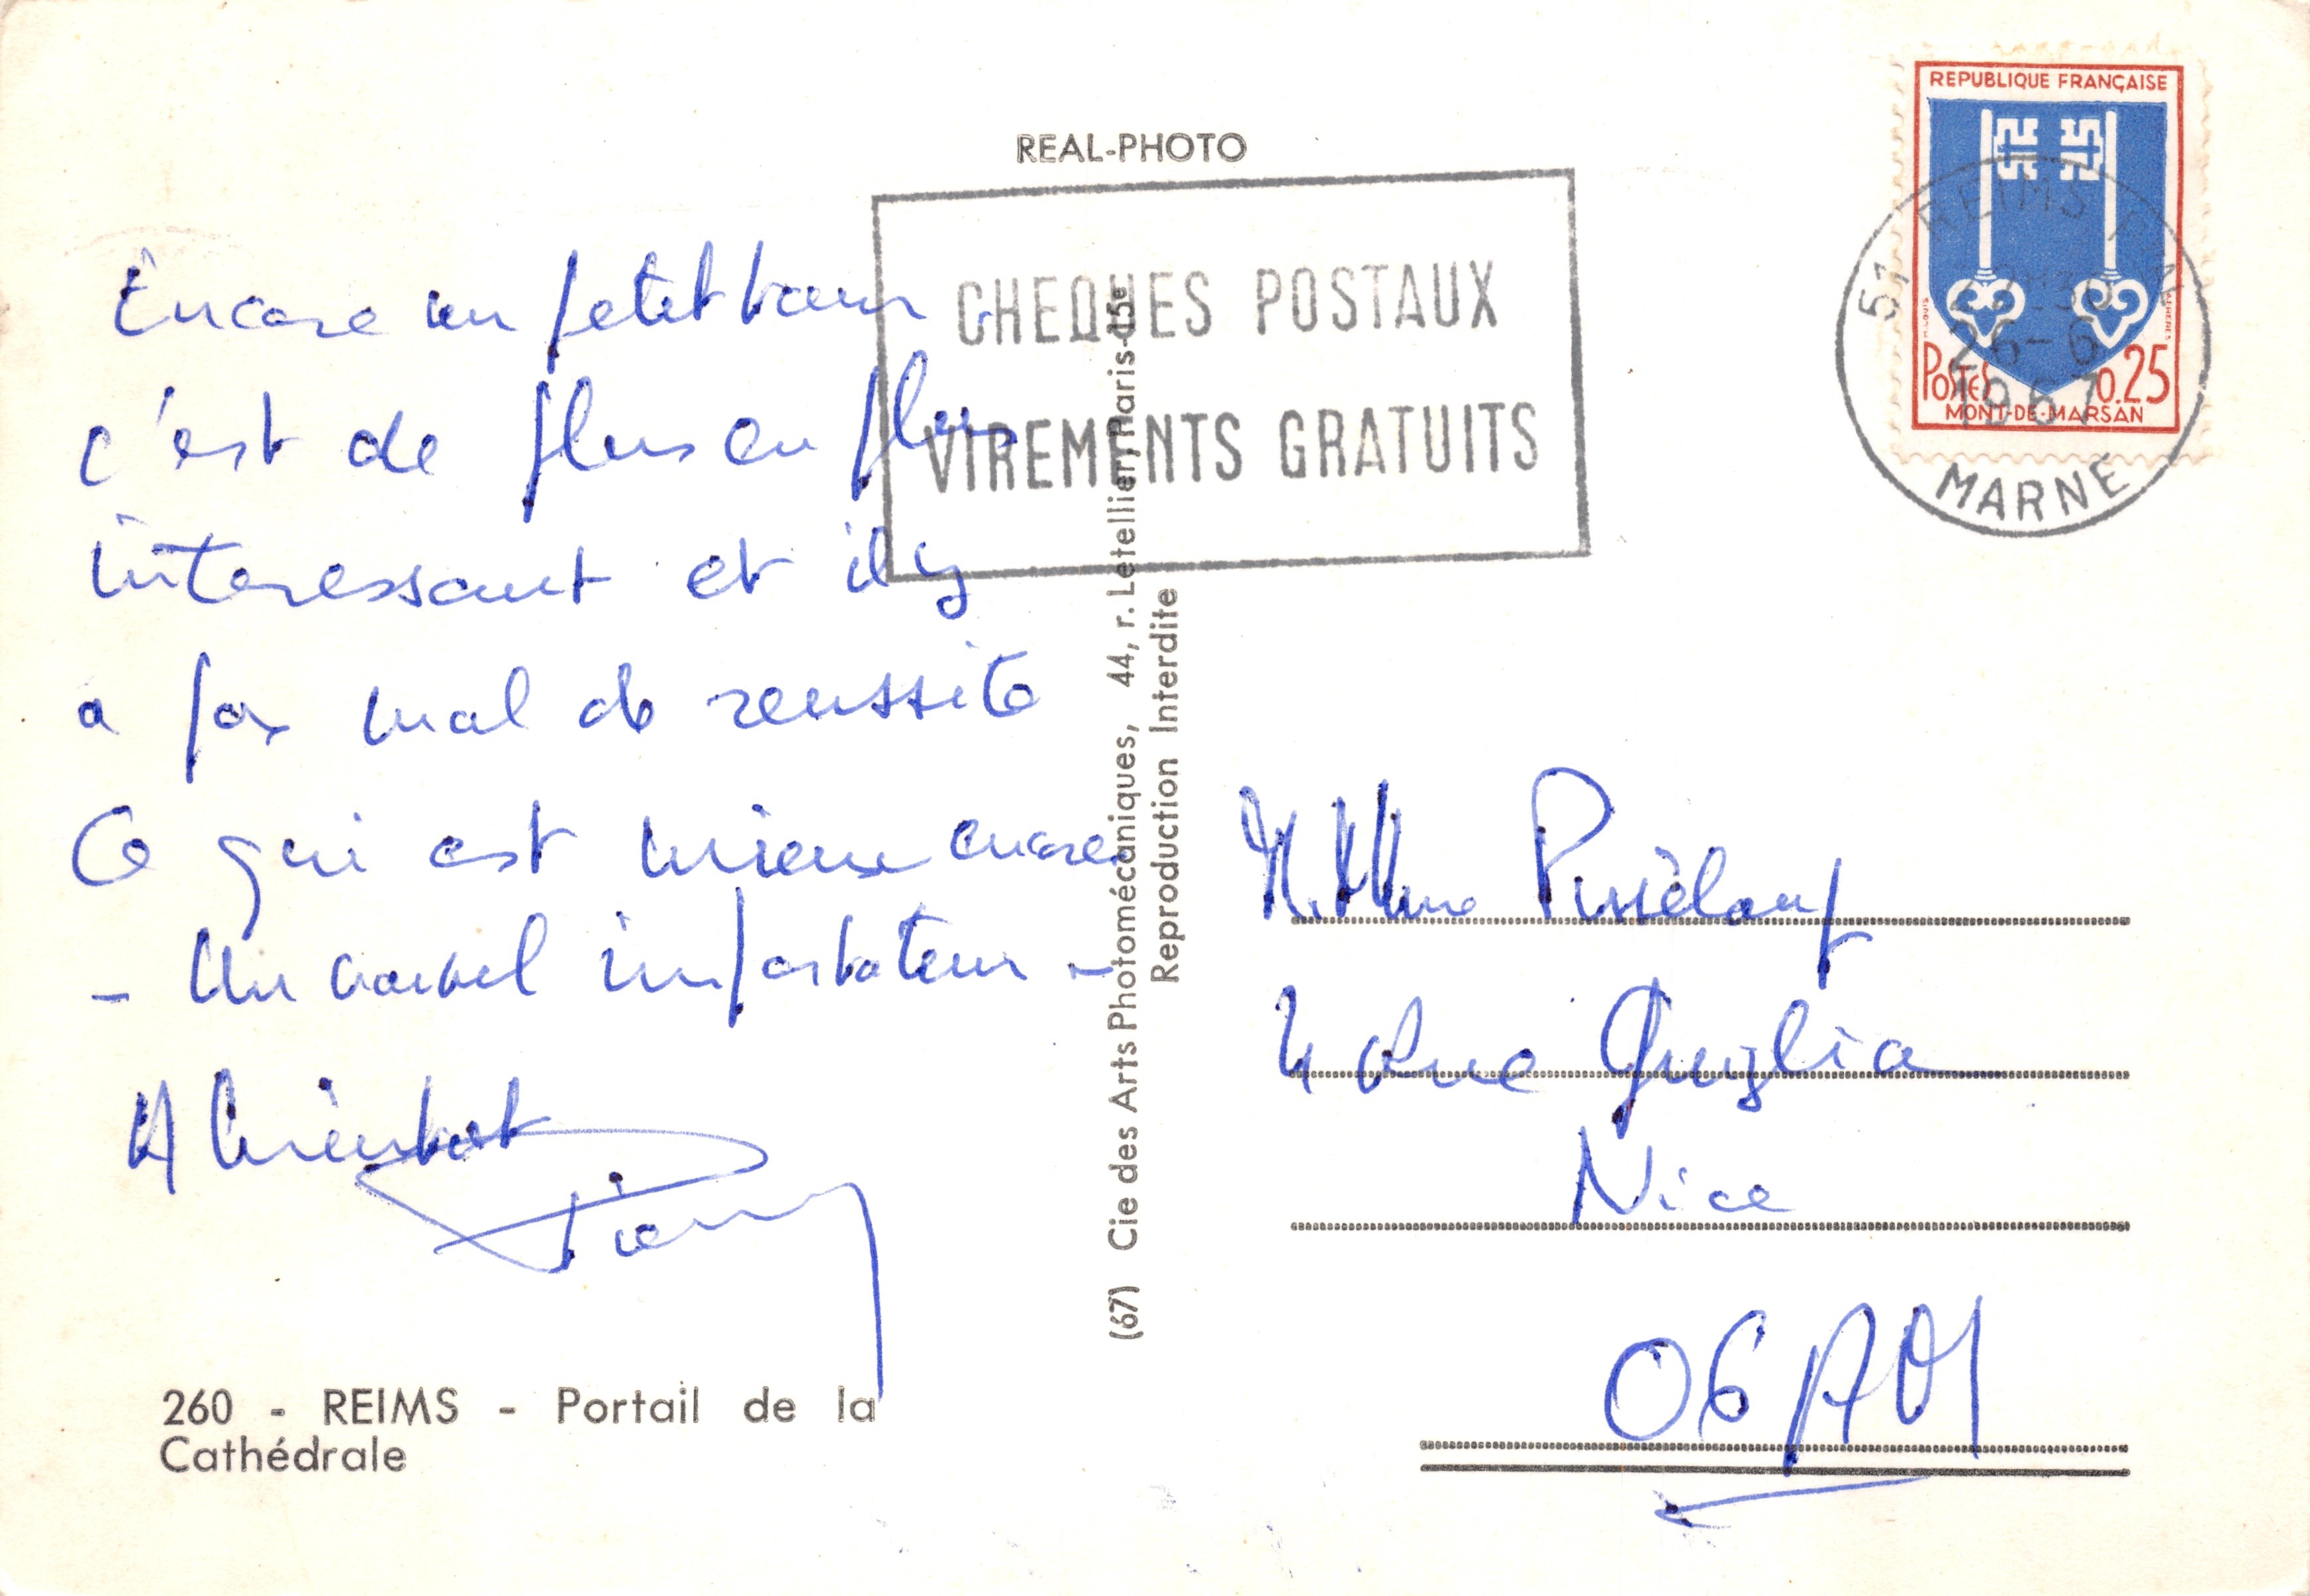 REAL-PHOTO
REPUBLIQUE FRANÇAISE
POSTES 0.25
MONT-DE-MARSAN
51 REIMS
26-6
1967
MARNE
CHEQUES POSTAUX
VIREMENTS GRATUITS
Encore un petit tour
c'est de plus en plus
interessant et il y
a pas mal de reussite
Ce qui est mieux encore
- Un nouvel importateur -
A bientot
Pierre
260 - REIMS - Portail de la
Cathédrale
(67) Cie des Arts Photomécaniques, 44, r. Letellier, Paris-15e
Reproduction Interdite
M. Mme
4 Rue Guiglia
Nice
06 AM